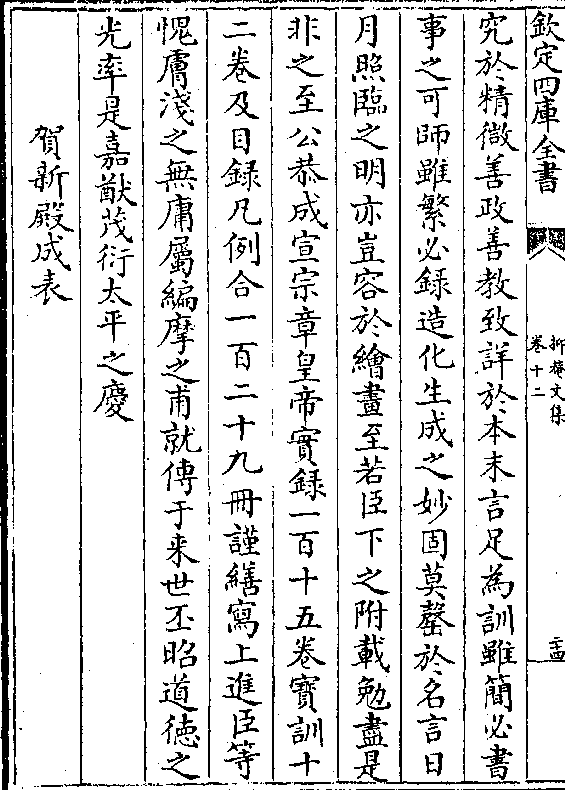 欽定四庫全書
抑菴文集
卷十二
究於精微善政善教致詳於本末言足為訓雖簡必書
事之可師雖繁必錄造化生成之妙固莫罄於名言日
月照臨之明亦豈容於繪畫至若臣下之附載勉盡是
非之至公恭成宣宗章皇帝實録一百十五卷寶訓十
二卷及目録凡例合一百二十九冊謹繕寫上進臣等
愧膚淺之無庸屬編摩之甫就傳于来世丕昭道德之
光率是嘉猷茂衍太平之慶
賀新殿成表